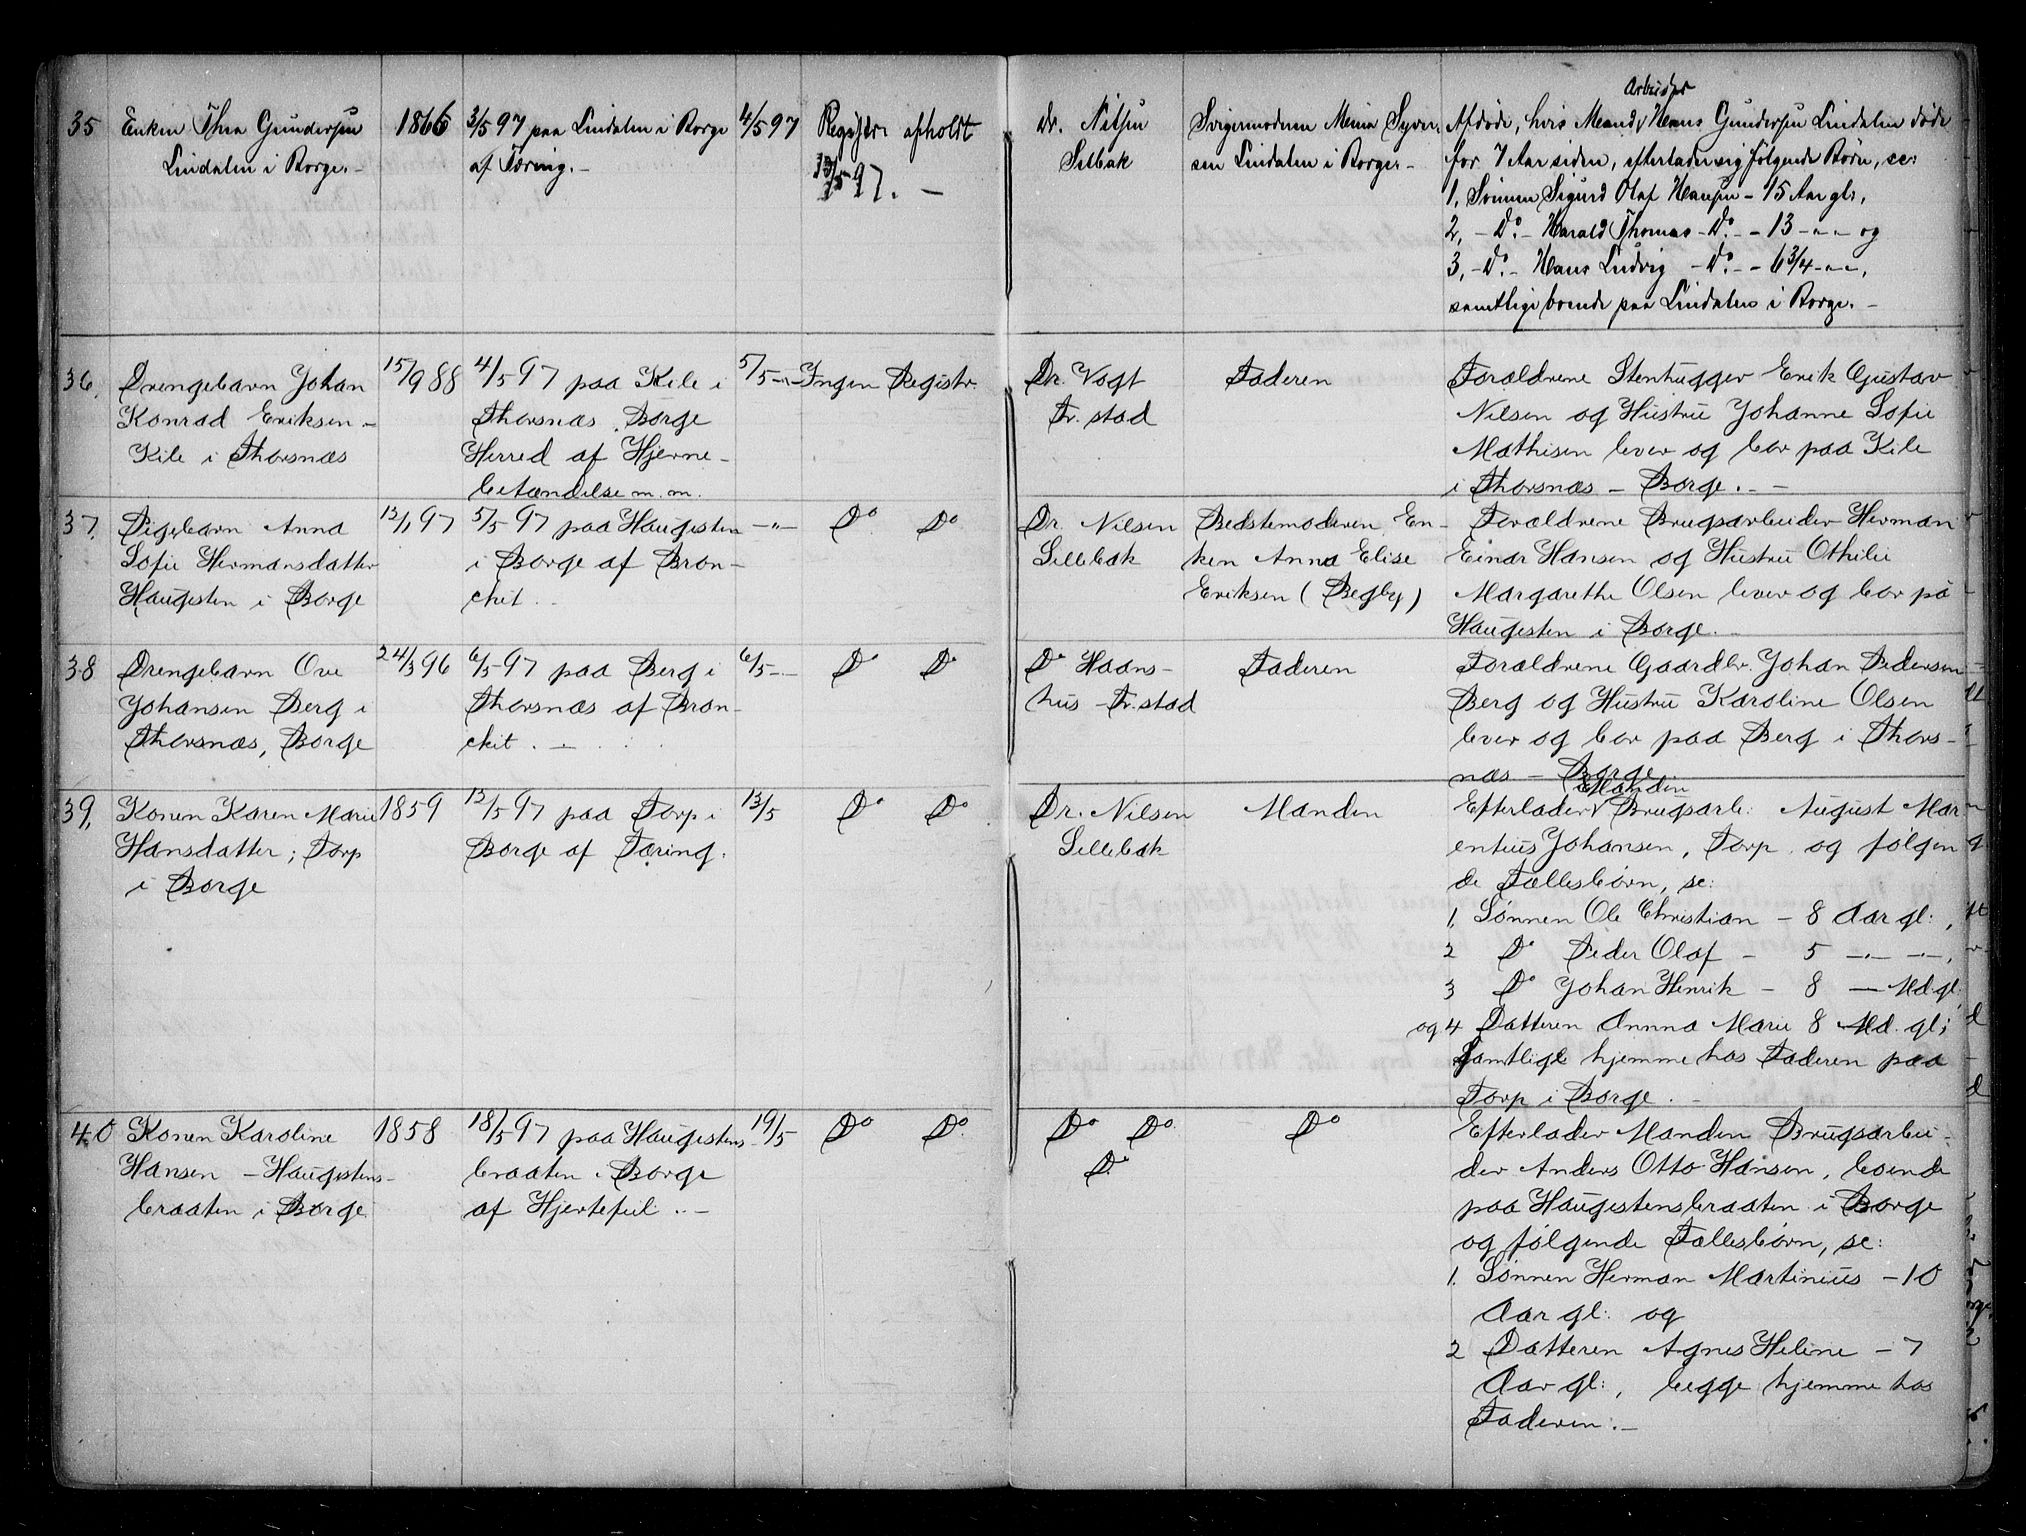 35 Enken Thea Gundersen 1866 3/5 97 paa Lindalen i Borge 4/5 97 Registr. afholdt
Lindalen i Borge. - af Tæring. - 13/5 97. -
dr. Nilsen Svigermoderen Mina Syver- Afdøde, hvis Mand, Arbeider Hans Gundersen Lindalen døde
Sellebak sen Lindalen i Borge. - for 7 Aar siden, efterlader sig følgende Børn, se:
1, Sønnen Sigurd Olaf Hansen - 15 Aar gl.,
2, - Do - Harald Thomas - Do - - 13 - " - og
3, - Do - Hans Ludvig - Do - - 6 3/4 - " -,
samtlige boende paa Lindalen i Borge. -
36. Drengebarn Johan 15/9 88 4/5 97 paa Kile i 5/5 - " - Ingen Registr.
Konrad Eriksen - Thorsnæs, Borge
Kile i Thorsnæs Herred af Hjerne-
betændelse m. m.
Dr. Vogt Faderen Forældrene Stenhugger Erik Gustav
Fr. stad Nilsen og Hustru Johanne Sofie
Mathisen lever og bor paa Kile
i Thorsnæs - Borge. -
37. Pigebarn Anna 13/1 97 5/5 97 paa Haugesten - " - Do Do
Sofie Hermansdatter i Borge af Bron-
Haugesten i Borge chit. -
Dr. Nilsen Bedstemoderen En- Forældrene Brugsarbeider Herman
Sellebak ken Anna Elise Einar Hansen og Hustru Othilie
Eriksen (Begby) Margarethe Olsen lever og bor på
Haugesten i Borge. -
38 Drengebarn Ove 24/3 96 6/5 97 paa Berg i 6/5 - - Do Do
Johansen Berg i Thorsnæs af Bron-
Thorsnæs, Borge chit. -
Do Haans- Faderen Forældrene Gaardbr. Johan Pedersen
hus Fr. stad Berg og Hustru Karoline Olsen
lever og bor paa Berg i Thors-
næs - Borge
39. Konen Karen Marie 1859 12/5 97 paa Torp i 13/5 Do Do
Hansdatter, Torp Borge af Tæring.
i Borge
Dr. Nilsen Manden Efterlader Manden Brugsarb. August Mar-
Sellebak entius Johansen, Torp og følgen
de Fællesbørn, se:
1, Sønnen Ole Christian - 8 Aar gl.,
2 Do Peder Olaf - 5 - " - - " -,
3 Do Johan Henrik - 8 - Md. gl.
og 4 Datteren Annna Marie 8 Md. gl;
Samtlige hjemme hos Faderen paa
Torp i Borge. -
40 Konen Karoline 1858 18/5 97 paa Haugestens 19/5 Do Do
Hansen - Haugestens- braaten i Borge
braaten i Borge af Hjertefeil. -
Do Do Do Efterlader Manden Brugsarbei-
Do der Anders Otto Hansen, boende
paa Haugestensbraaten i Borge
og følgende Fællesbørn, se:
1. Sønnen Herman Martinius - 10
Aar gl. og
2 Datteren Agnes Heline - 7
Aar gl., begge hjemme hos
Faderen. -